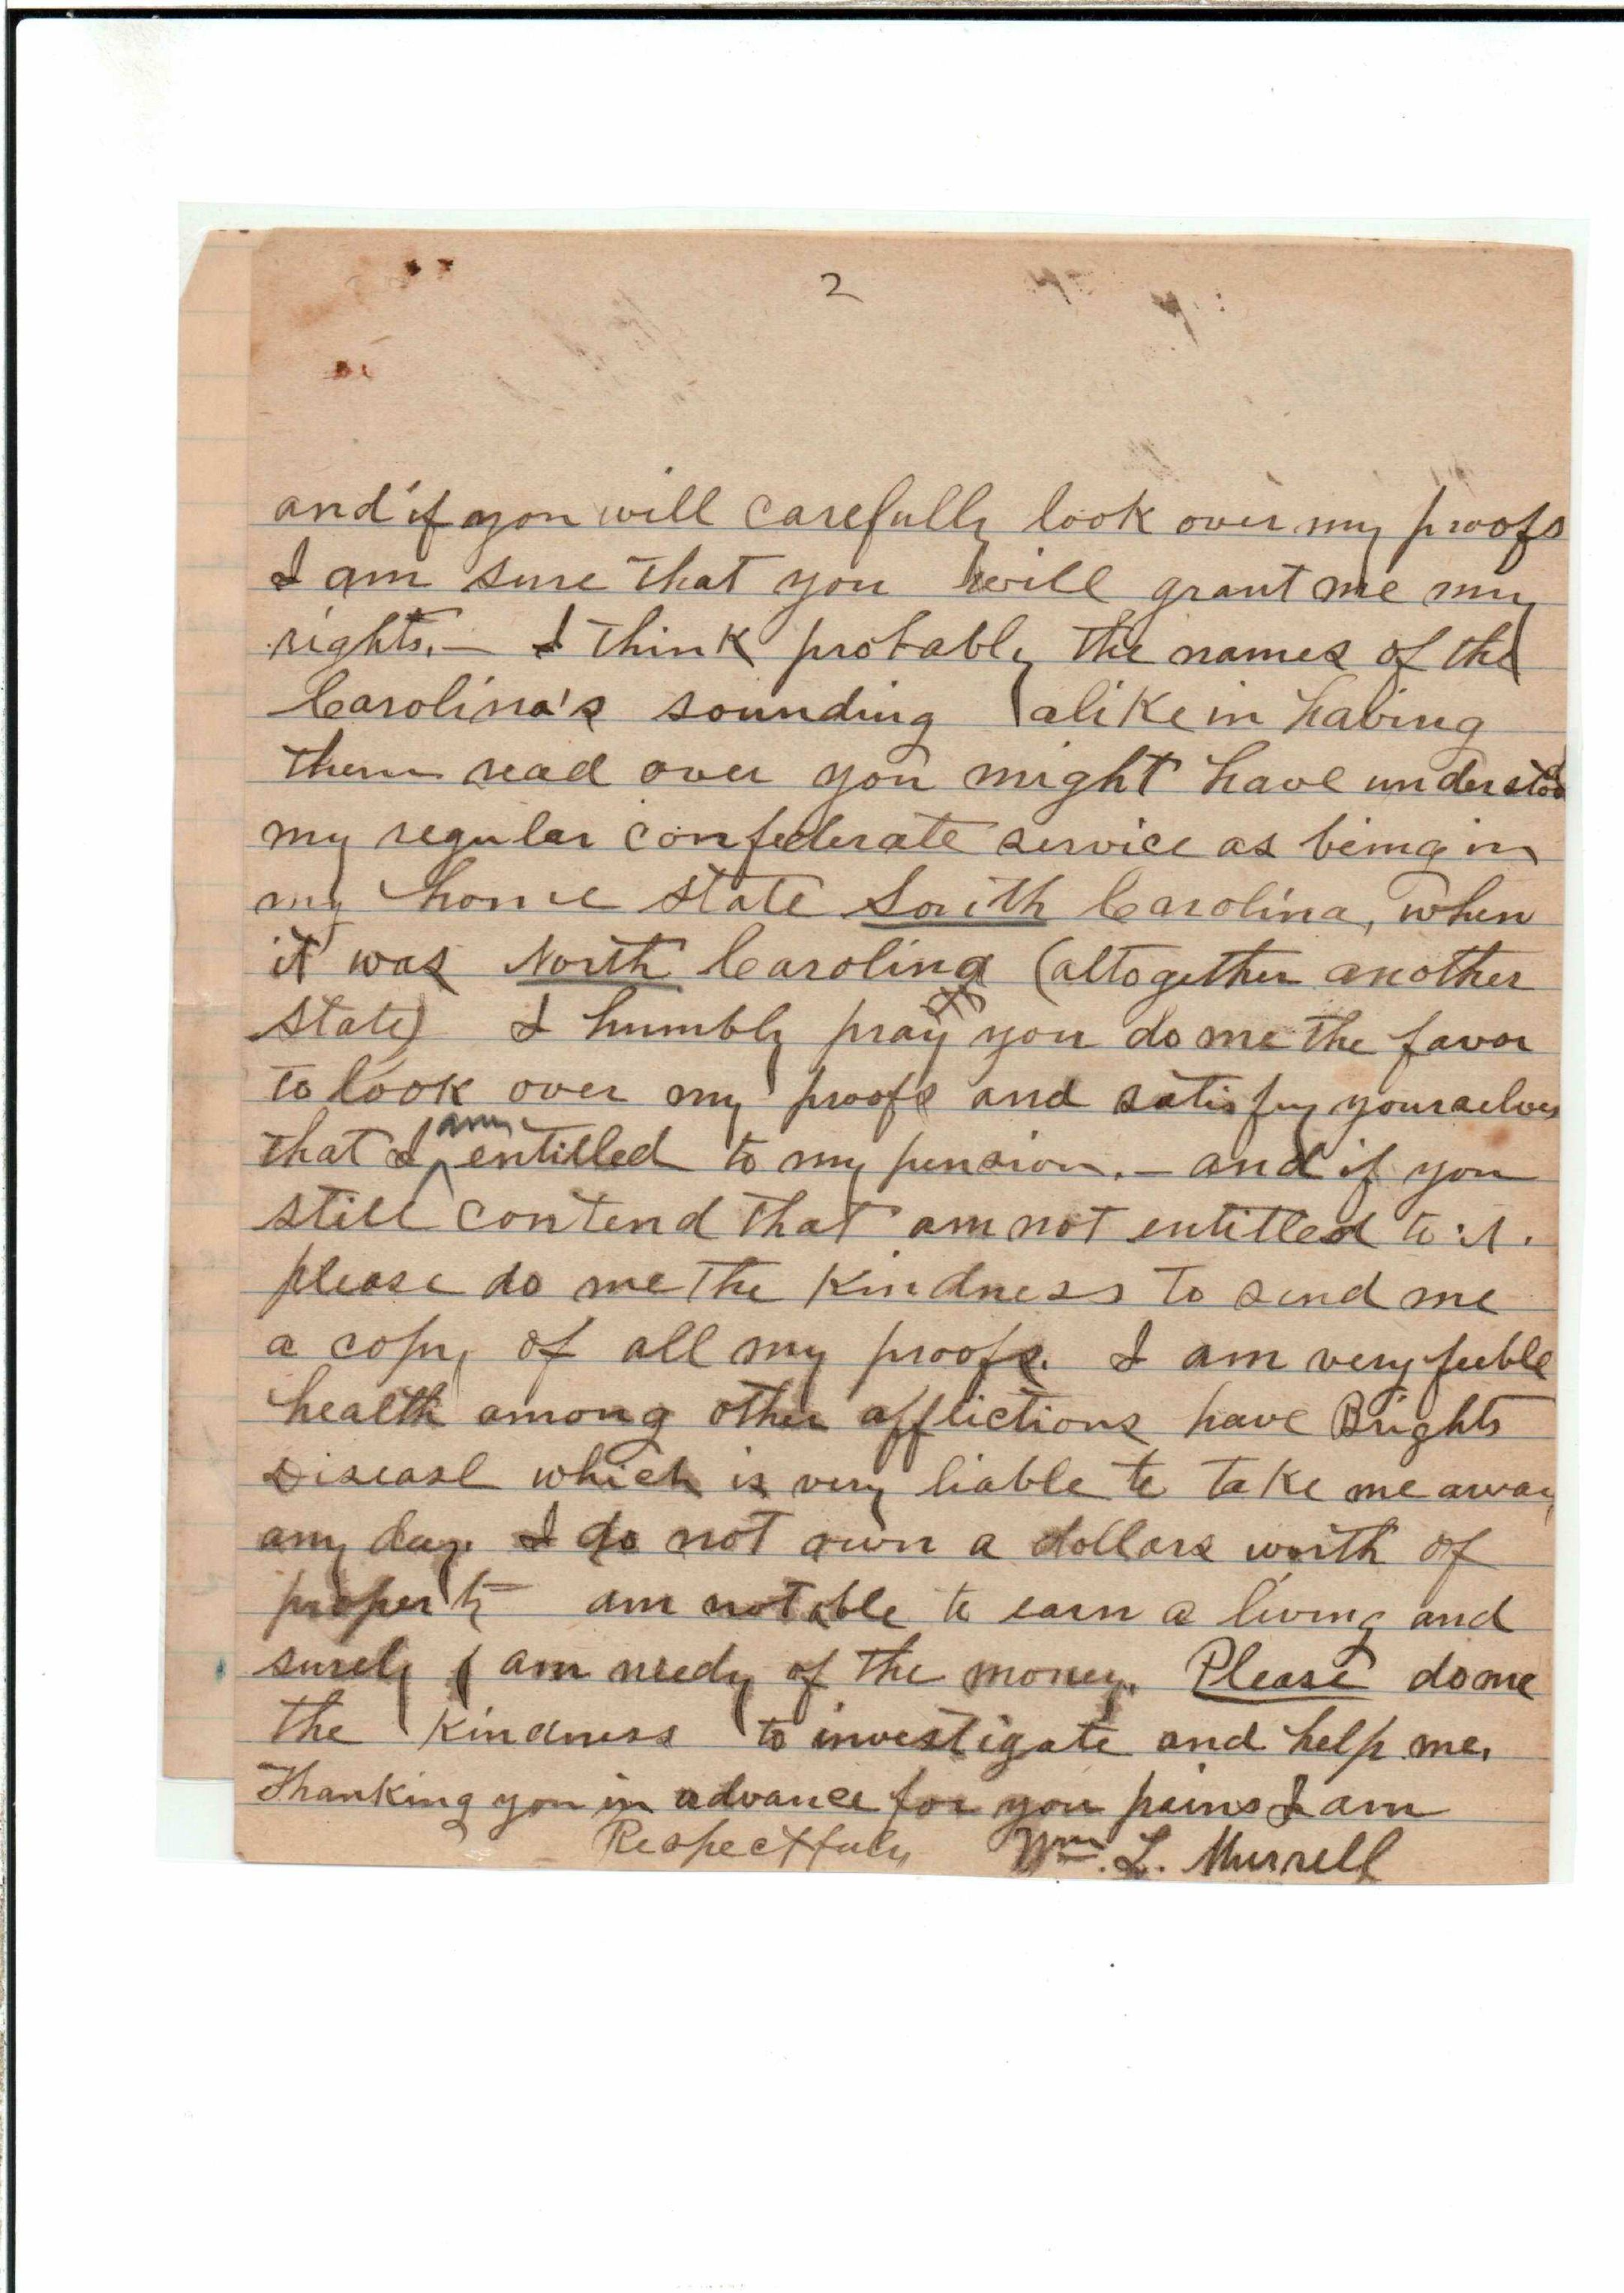 2
and if you will carefully look over my proofs
I am sure that you will grant me my
rights. — I think probably the names of the
Carolina's sounding alike in having
them read over you might have understood
my regular confederate service as being in
my home state South Carolina, when
it was North Carolina (altogether another
state) I humbly pray you do me the favor
to look over my proofs and satisfy yourselves
that I am entitled to my pension. — and if you
still contend that am not entitled to it.
please do me the kindness to send me
a copy of all my proofs. I am very feeble
health among other afflictions have Brights
Disease which is very liable to take me away
any day. I do not own a dollars worth of
property — am not able to earn a living and
surely I am needy of the money. Please do me
the kindness to investigate and help me.
Thanking you in advance for you pains I am
Respectfuly Wm. L. Murrell